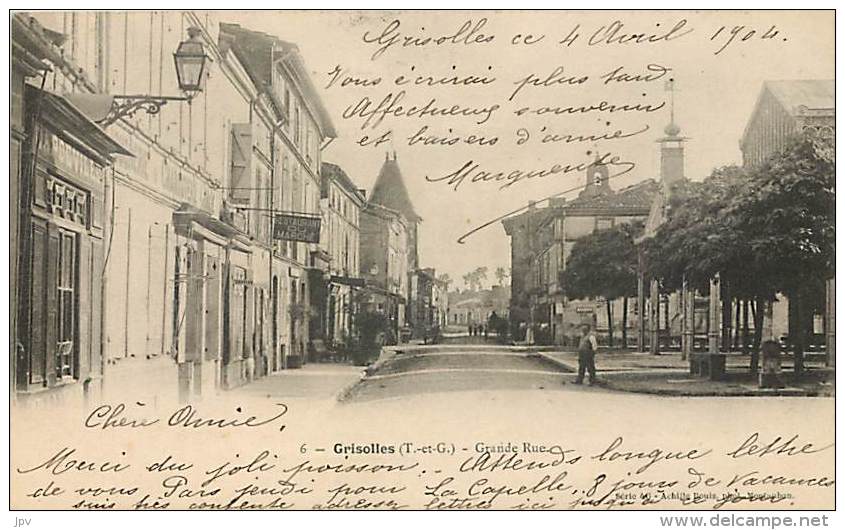 Grisolles ce 4 Avril 1904.
Vous écrirai plus tard
Affectueux souvenir
et baisers d'amie
Marguerite
RESTAURANT
DU
MARCHÉ
Chère Amie
6 — Grisolles (T.-et-G.) - Grande Rue
Merci du joli poisson. Attends longue lettre
de vous. Pars jeudi pour La Capelle, 8 jours de vacances
suis très contente adresser lettre ici jusqu'à ce jour.
Série 40 - Achille Bouis, phot. Montauban.
jpv
www.delcampe.net